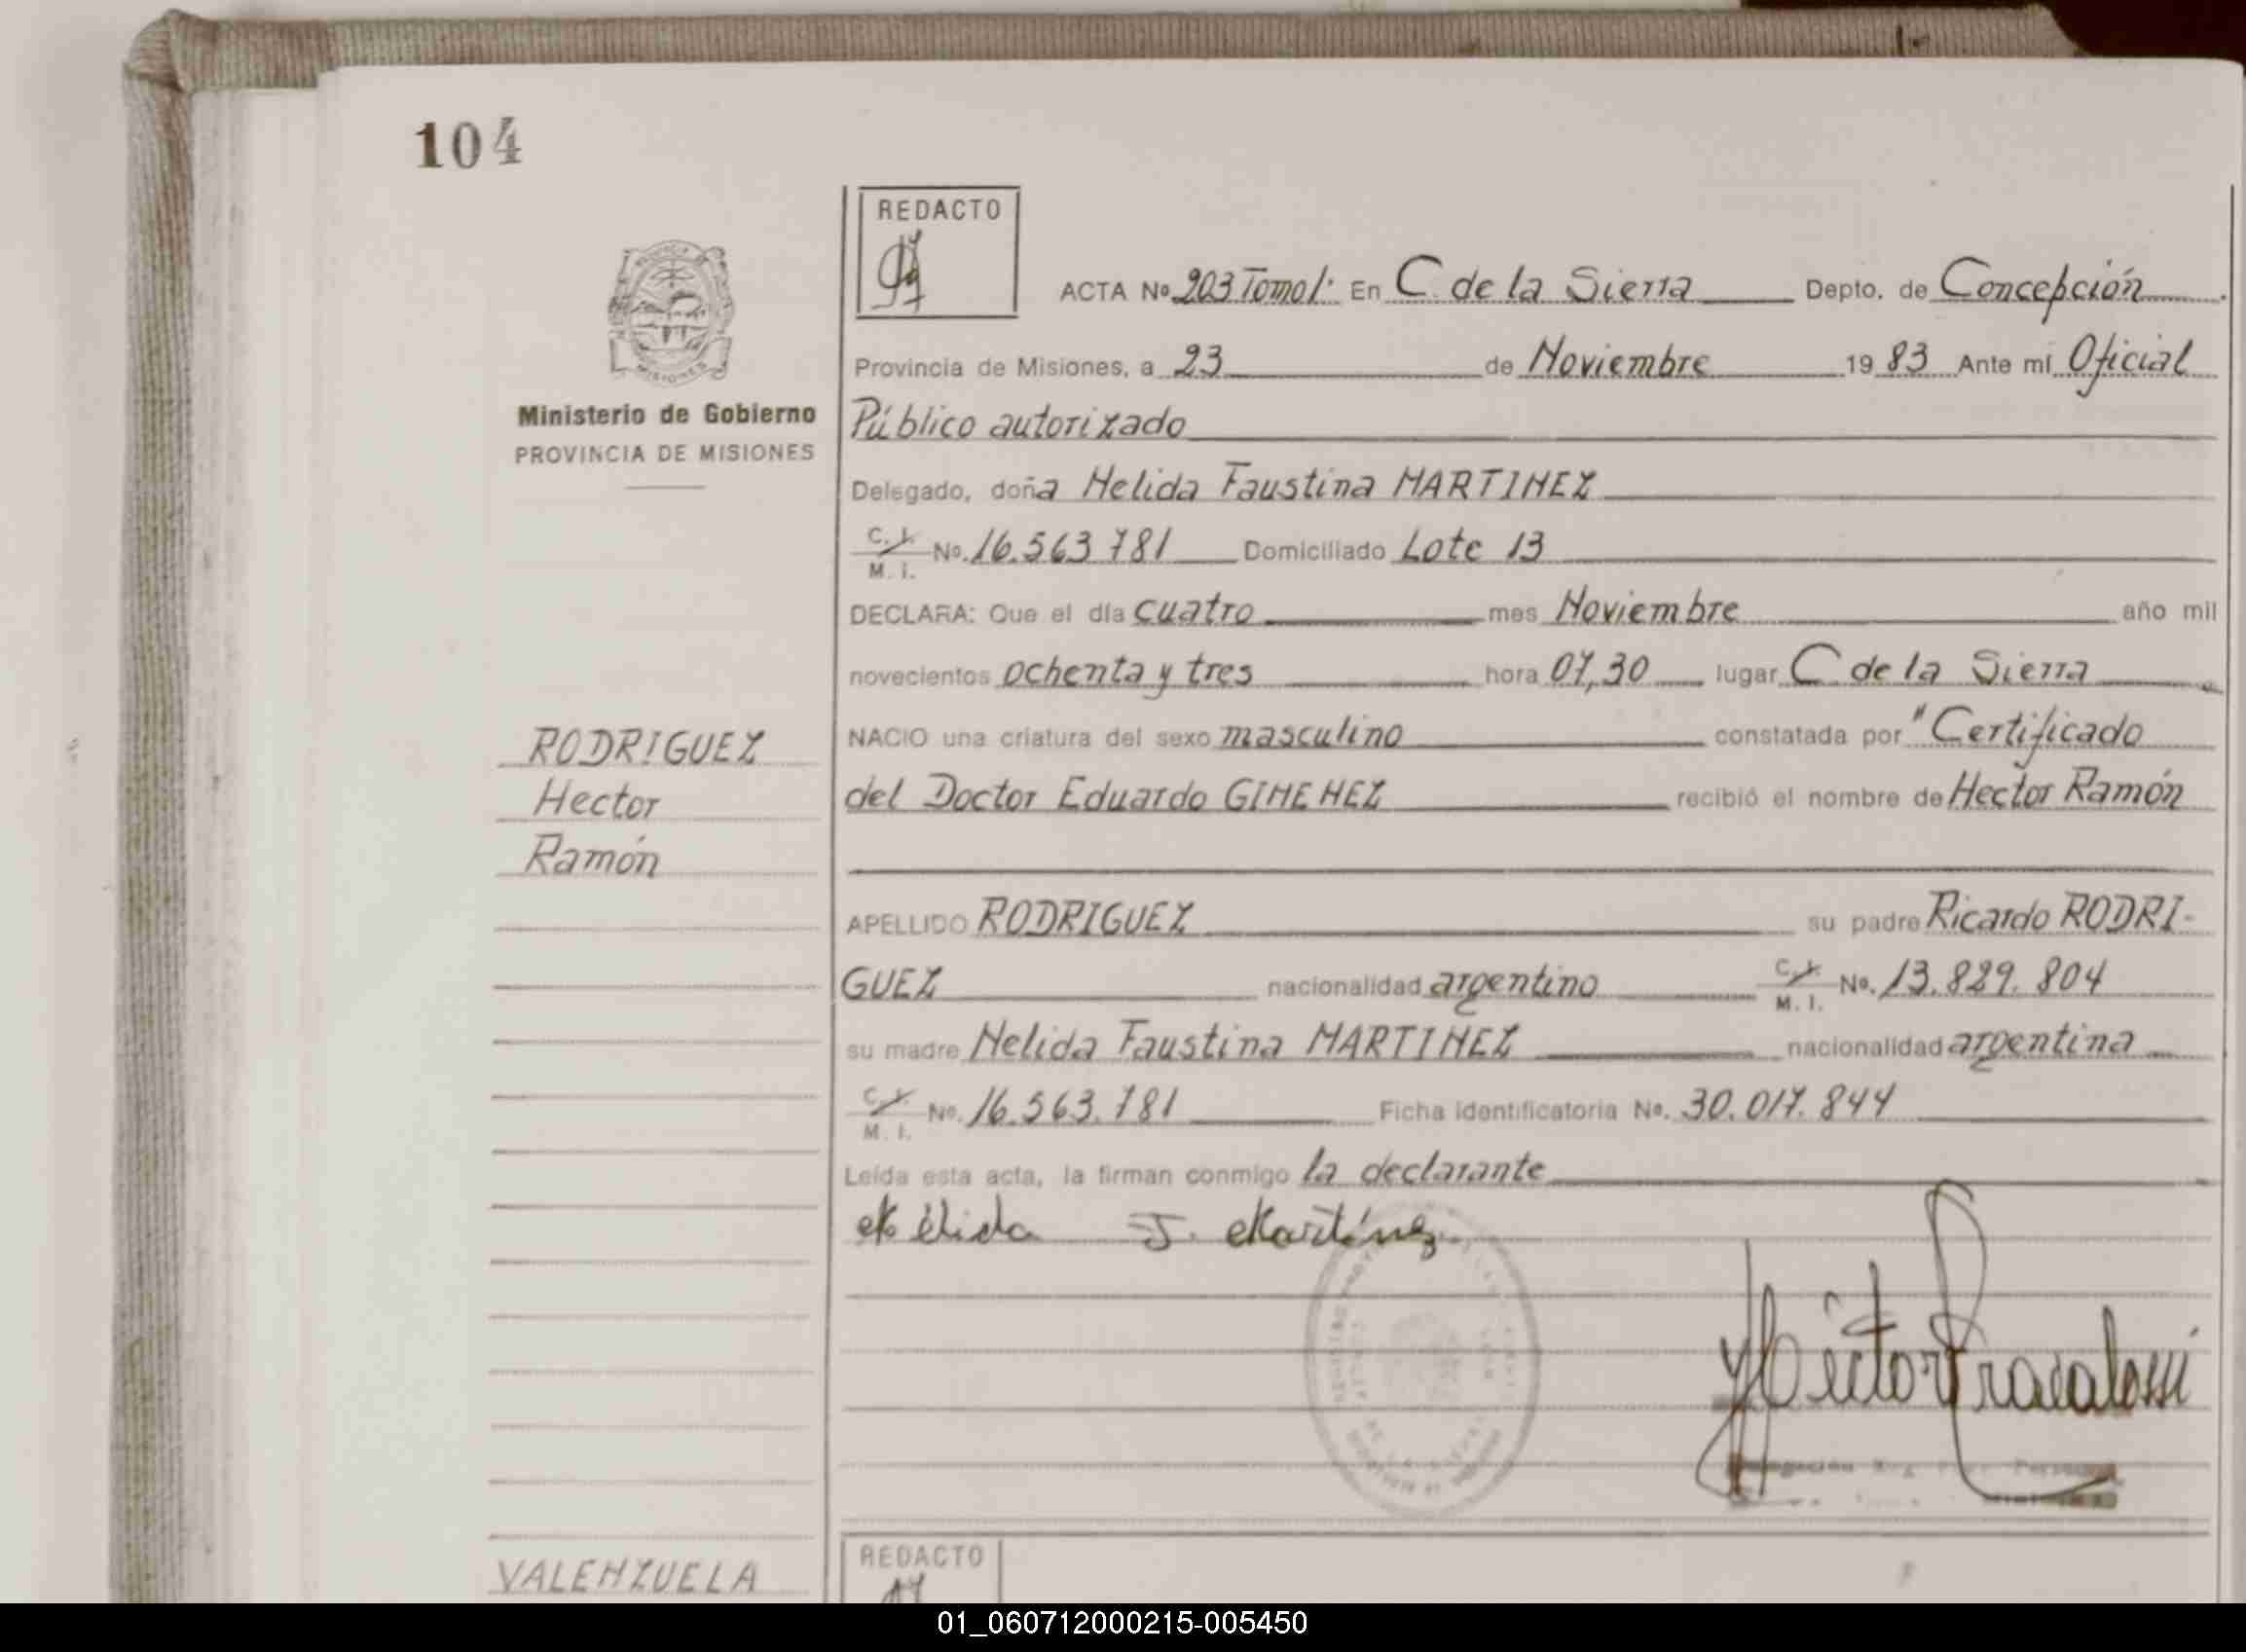 104
REDACTO
ACTA Nº 203 Tomo 1º En C. de la Sierra Depto. de Concepción
Provincia de Misiones, a 23 de Noviembre 1983 Ante mí Oficial
Público autorizado
Ministerio de Gobierno
PROVINCIA DE MISIONES
Delegado, doña Nelida Faustina MARTINEZ
C. I. M. I. No. 16.563.781 Domiciliado Lote 13
DECLARA: Que el día cuatro mes Noviembre año mil
novecientos ochenta y tres hora 07,30 lugar C. de la Sierra
NACIO una criatura del sexo masculino constatada por "Certificado
del Doctor Eduardo GIMENEZ recibió el nombre de Hector Ramón
RODRIGUEZ
Hector
Ramón
APELLIDO RODRIGUEZ su padre Ricardo RODRI-
GUEZ nacionalidad argentino C. I. M. I. No. 13.829.804
su madre Nelida Faustina MARTINEZ nacionalidad argentina
C. I. M. I. No. 16.563.781 Ficha identificatoria No. 30.017.844
Leída esta acta, la firman conmigo la declarante
Nélida F. Martínez
VALENZUELA
REDACTO
01_060712000215-005450